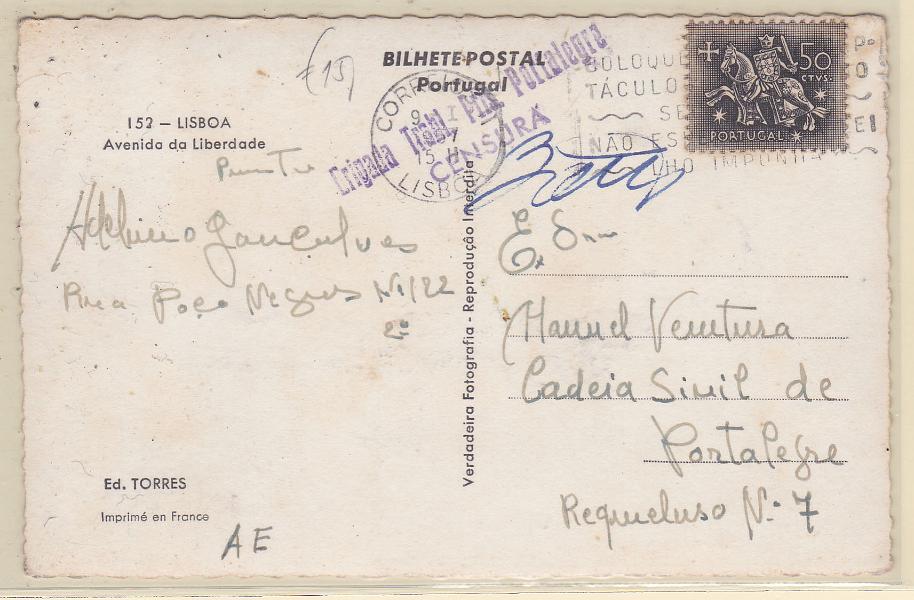 (15)
BILHETE-POSTAL
Portugal
152 — LISBOA
Avenida da Liberdade
CORREIOS
9 I
15 H
LISBOA
Brigada Trabl. Pris. Portalegre
CENSURA
COLOQUE
TÁCULO
SE
NÃO ES
LHO IMPUNHA
50
CTVS.
PORTUGAL
Adelino Gonçalves
Rua Poço Negros Nº 122
2º
E. Snr
Manuel Ventura
Cadeia Sivil de
Portalegre
Requeluso N.º 7
Verdadeira Fotografia - Reprodução Interdita
Ed. TORRES
Imprimé en France
AE